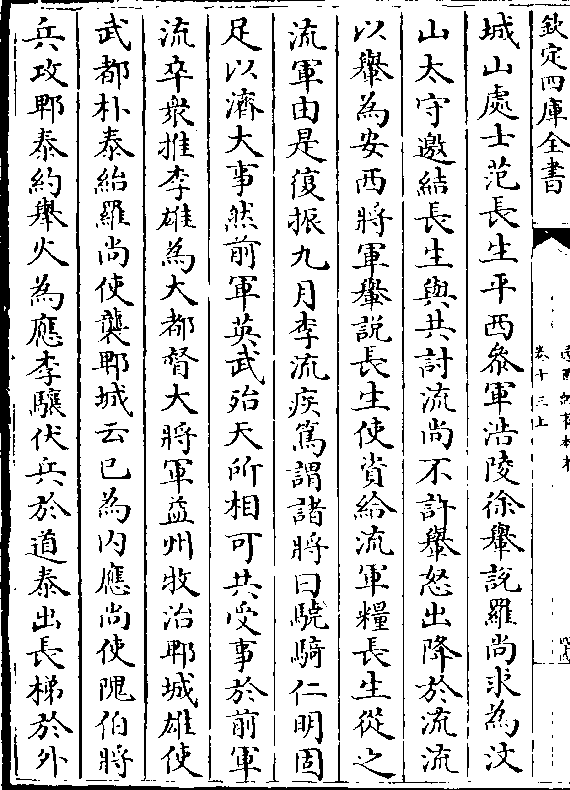 欽定四庫全書
卷十三上
城山處士范長生平西叅軍涪陵徐轝説羅尚求為汶
山太守邀結長生與共討流尚不許轝怒出降於流流
以轝為安西將軍轝説長生使資給流軍糧長生從之
流軍由是復振九月李流疾篤謂諸將曰驍騎仁明固
足以濟大事然前軍英武殆天所相可共受事於前軍
流卒衆推李雄為大都督大將軍益州牧治郫城雄使
武都朴泰紿羅尚使襲郫城云已為内應尚使隗伯將
兵攻郫泰約舉火為應李驤伏兵於道泰出長梯於外